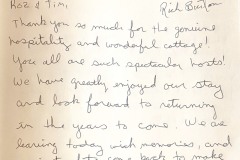 Roz & Tim,
Rich
Thank you so much for the genuine
hospitality and wonderful cottage!
You all are such spectacular hosts!
We have greatly enjoyed our stay
and look forward to returning
in the years to come. We are
leaving today with memories, and
come back to make